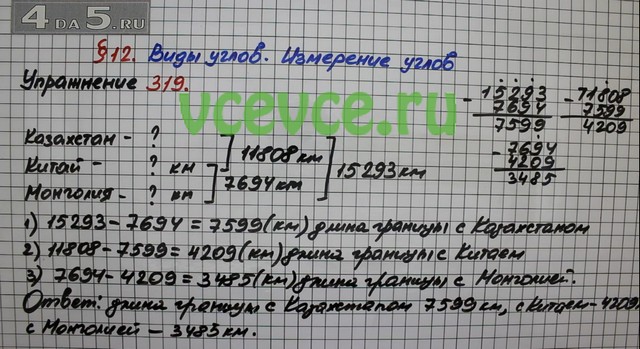 4 DA 5.RU
§12. Виды углов. Измерение углов
Упражнение 319.
vcevce.ru
Казахстан - ?
Китай - ? км
Монголия - ? км
11808 км
7694 км
15293 км
- 15293
7694
7599
- 71808
7599
4209
- 7694
4209
3485
1) 15293 - 7694 = 7599 (км) длина границы с Казахстаном
2) 11808 - 7599 = 4209 (км) длина границы с Китаем
3) 7694 - 4209 = 3485 (км) длина границы с Монголией.
Ответ: длина границы с Казахстаном 7599 км, с Китаем - 4209
с Монголией - 3485 км.